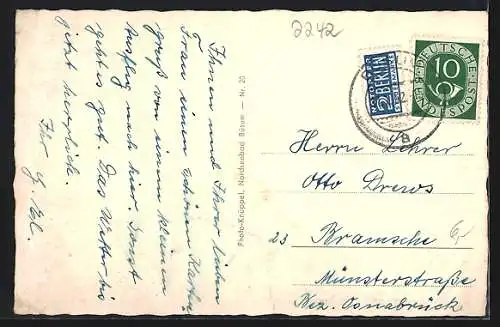 2242
Ihnen und Ihrer lieben
Frau einen schönen Karten-
gruß von einem kleinen
Ausflug nach hier. Sonst
geht es gut. Das Wetter bis
jetzt herrlich.
Ihr G.
Photo-Knüppel, Nordseebad Büsum — Nr. 20
NOTOPFER
2 BERLIN
STEUERMARKE
DEUTSCHE BUNDESPOST
10
a
Herrn Lehrer
Otto Drews
23 Bramsche
Münsterstraße
Bez. Osnabrück
6,-